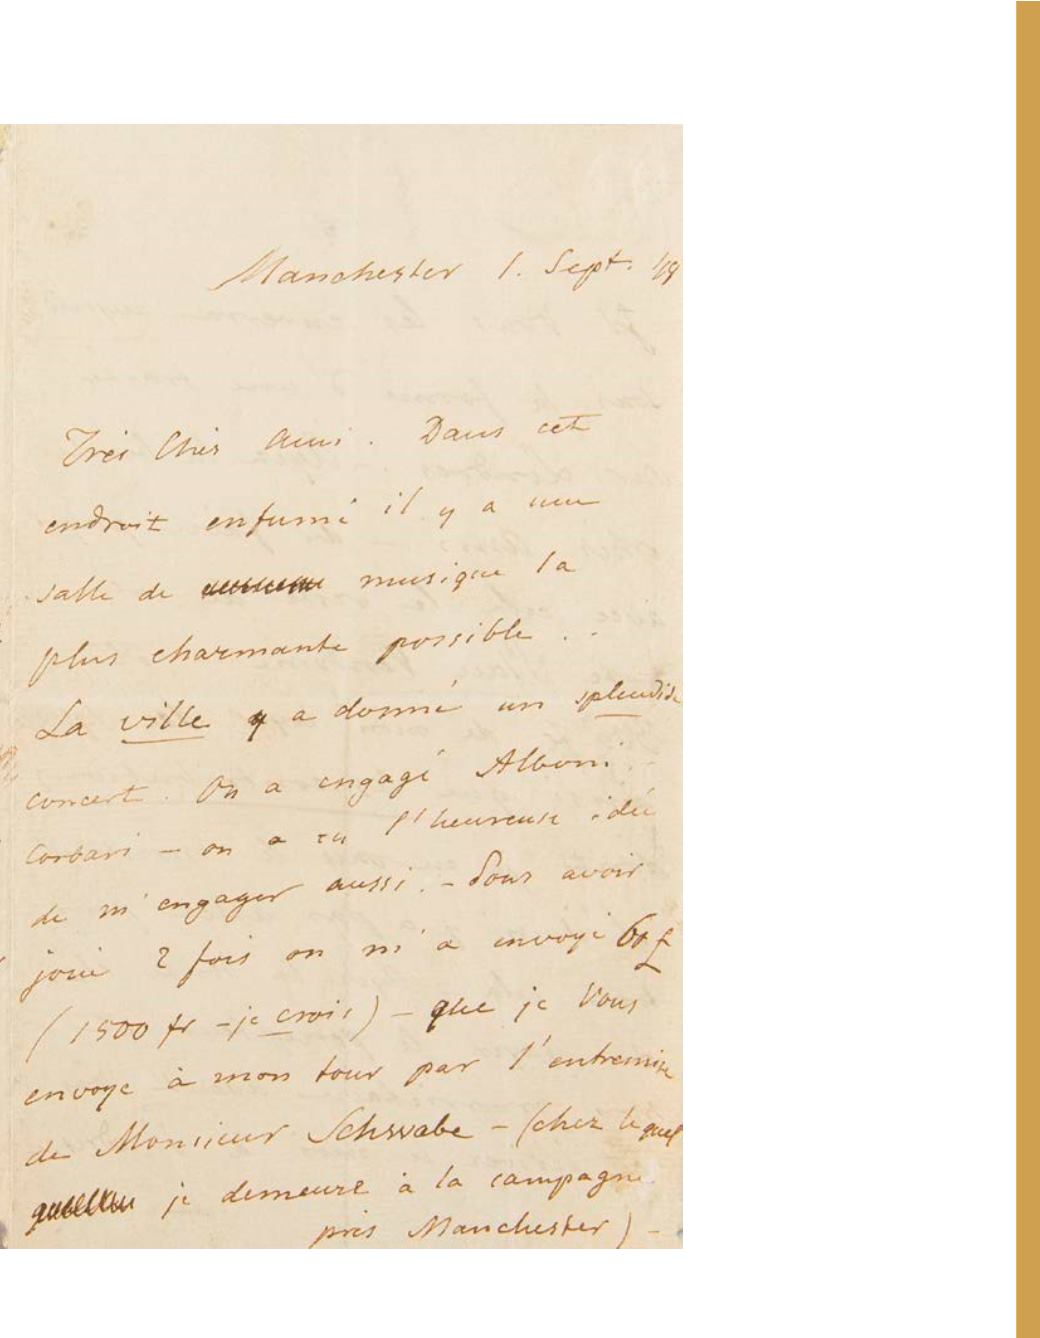 Manchester 1. Sept. 48
Très Cher Ami. Dans cet
endroit enfumé il y a une
salle de musique la
plus charmante possible . .
La ville y a donné un splendide
concert. On a engagé Alboni -
Corbari - on a eu l'heureuse idée
de m'engager aussi. - Pour avoir
joué 2 fois on m'a envoyé 60 £
(1500 fr - je crois) - que je Vous
envoye à mon tour par l'entremise
de Monsieur Schwabe - (chez lequel
je demeure à la campagne
près Manchester) -